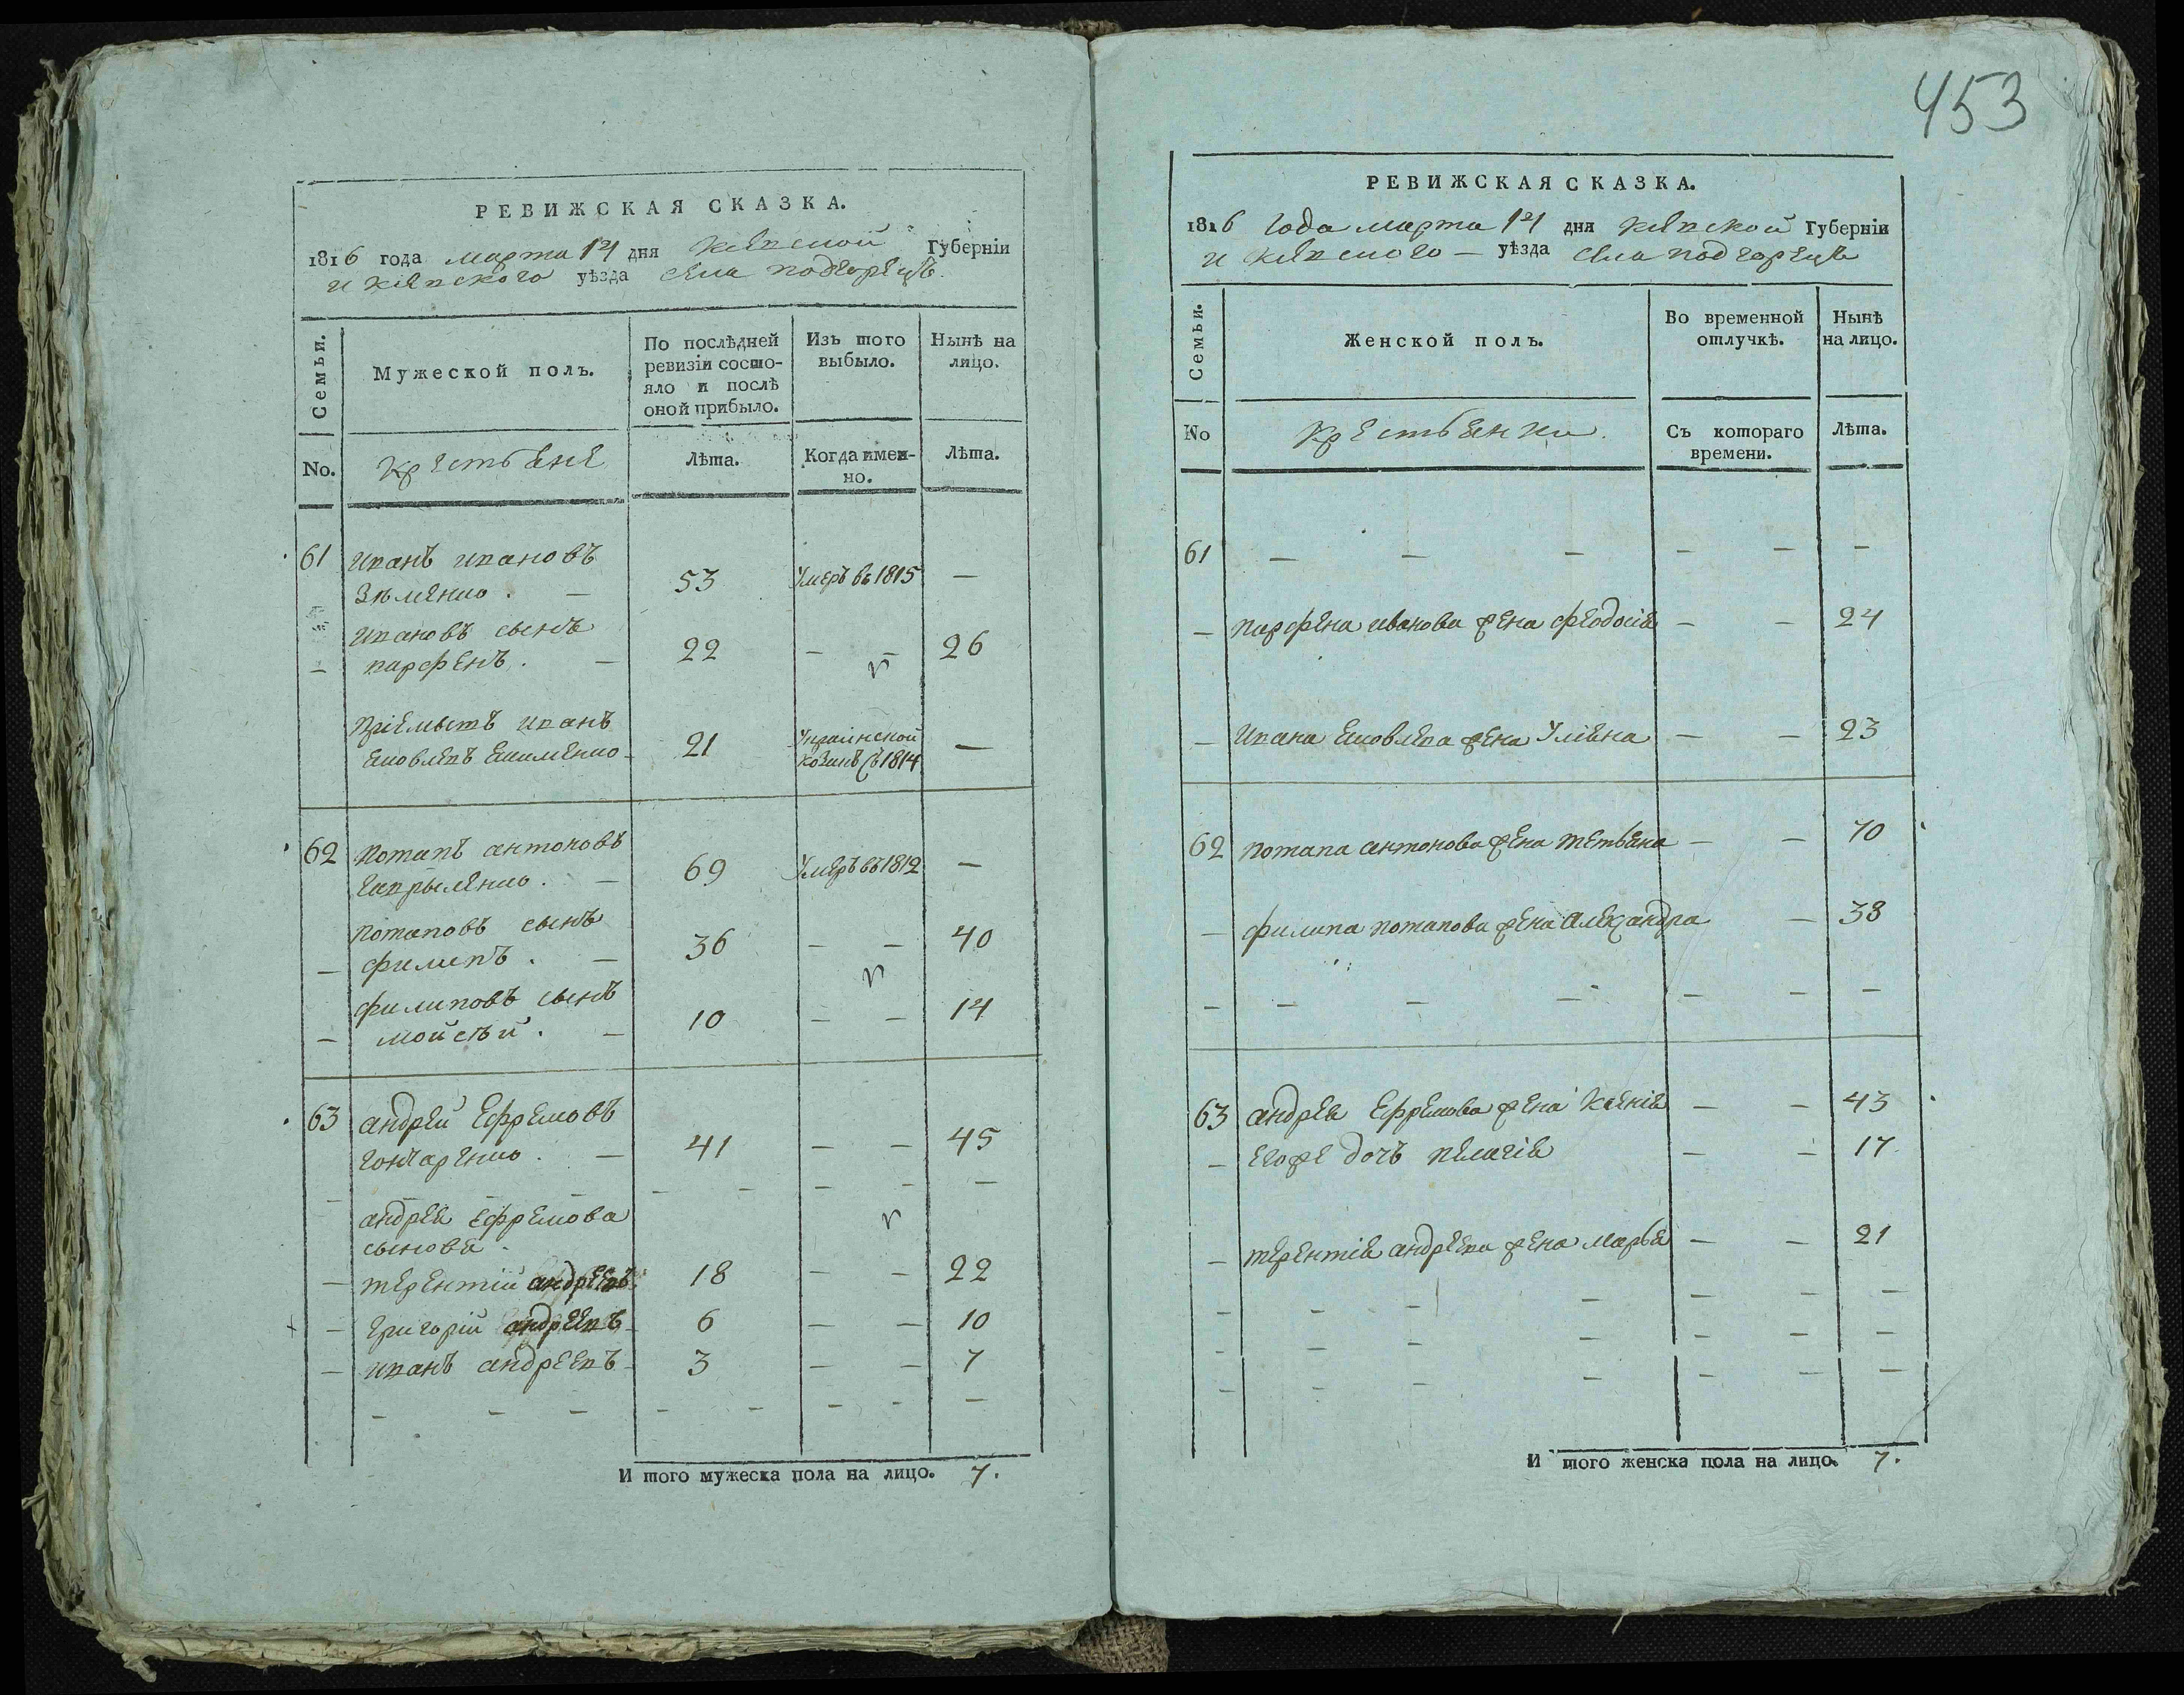 453
РЕВИЖСКАЯ СКАЗКА.
1816 года марта 14 дня Киевской Губерніи
и киевского уѣзда села подгорецъ.
Семьи.
Мужеской полъ.
По послѣдней ревизіи состояло и послѣ оной прибыло.
Изъ того выбыло.
Нынѣ на лицо.
No.
Крестьяне
Лѣта.
Когда именно.
Лѣта.
61 иванъ ивановъ
53 Умеръ въ 1815 —
ивановъ сынъ
— парфенъ. — 22 — — 26
пріемышъ иванъ
21 —
1814
62 потапъ антоновъ
69 Умеръ въ 1812 —
потаповъ сынъ
— филипъ. — 36 — — 40
филиповъ сынъ
— мойсѣй. — 10 — — 14
63 андрей Ефремовъ
гончаренко. — 41 — — 45
андрея Ефремова
сыновя
— терентій андреевъ 18 — — 22
— григорій андреевъ 6 — — 10
— иванъ андреевъ 3 — — 7
И того мужеска пола на лицо. 7.
РЕВИЖСКАЯ СКАЗКА.
1816 года марта 14 дня киевской Губерніи
и киевского — уѣзда села подгорецъ
Семьи.
Женской полъ.
Во временной отлучкѣ.
Нынѣ на лицо.
No
Крестьянки.
Съ котораго времени.
Лѣта.
61 — — — — — —
— парфена иванова жена феодосія — — 24
— ивана яковлева жена Уліяна — — 23
62 потапа антонова жена татьяна — — 70
— филипа потапова жена александра — 38
63 андрея Ефремова жена Ксенія — — 43
— егоже дочь пелагія — — 17
— терентія андреева жена марья — — 21
И того женска пола на лицо. 7.